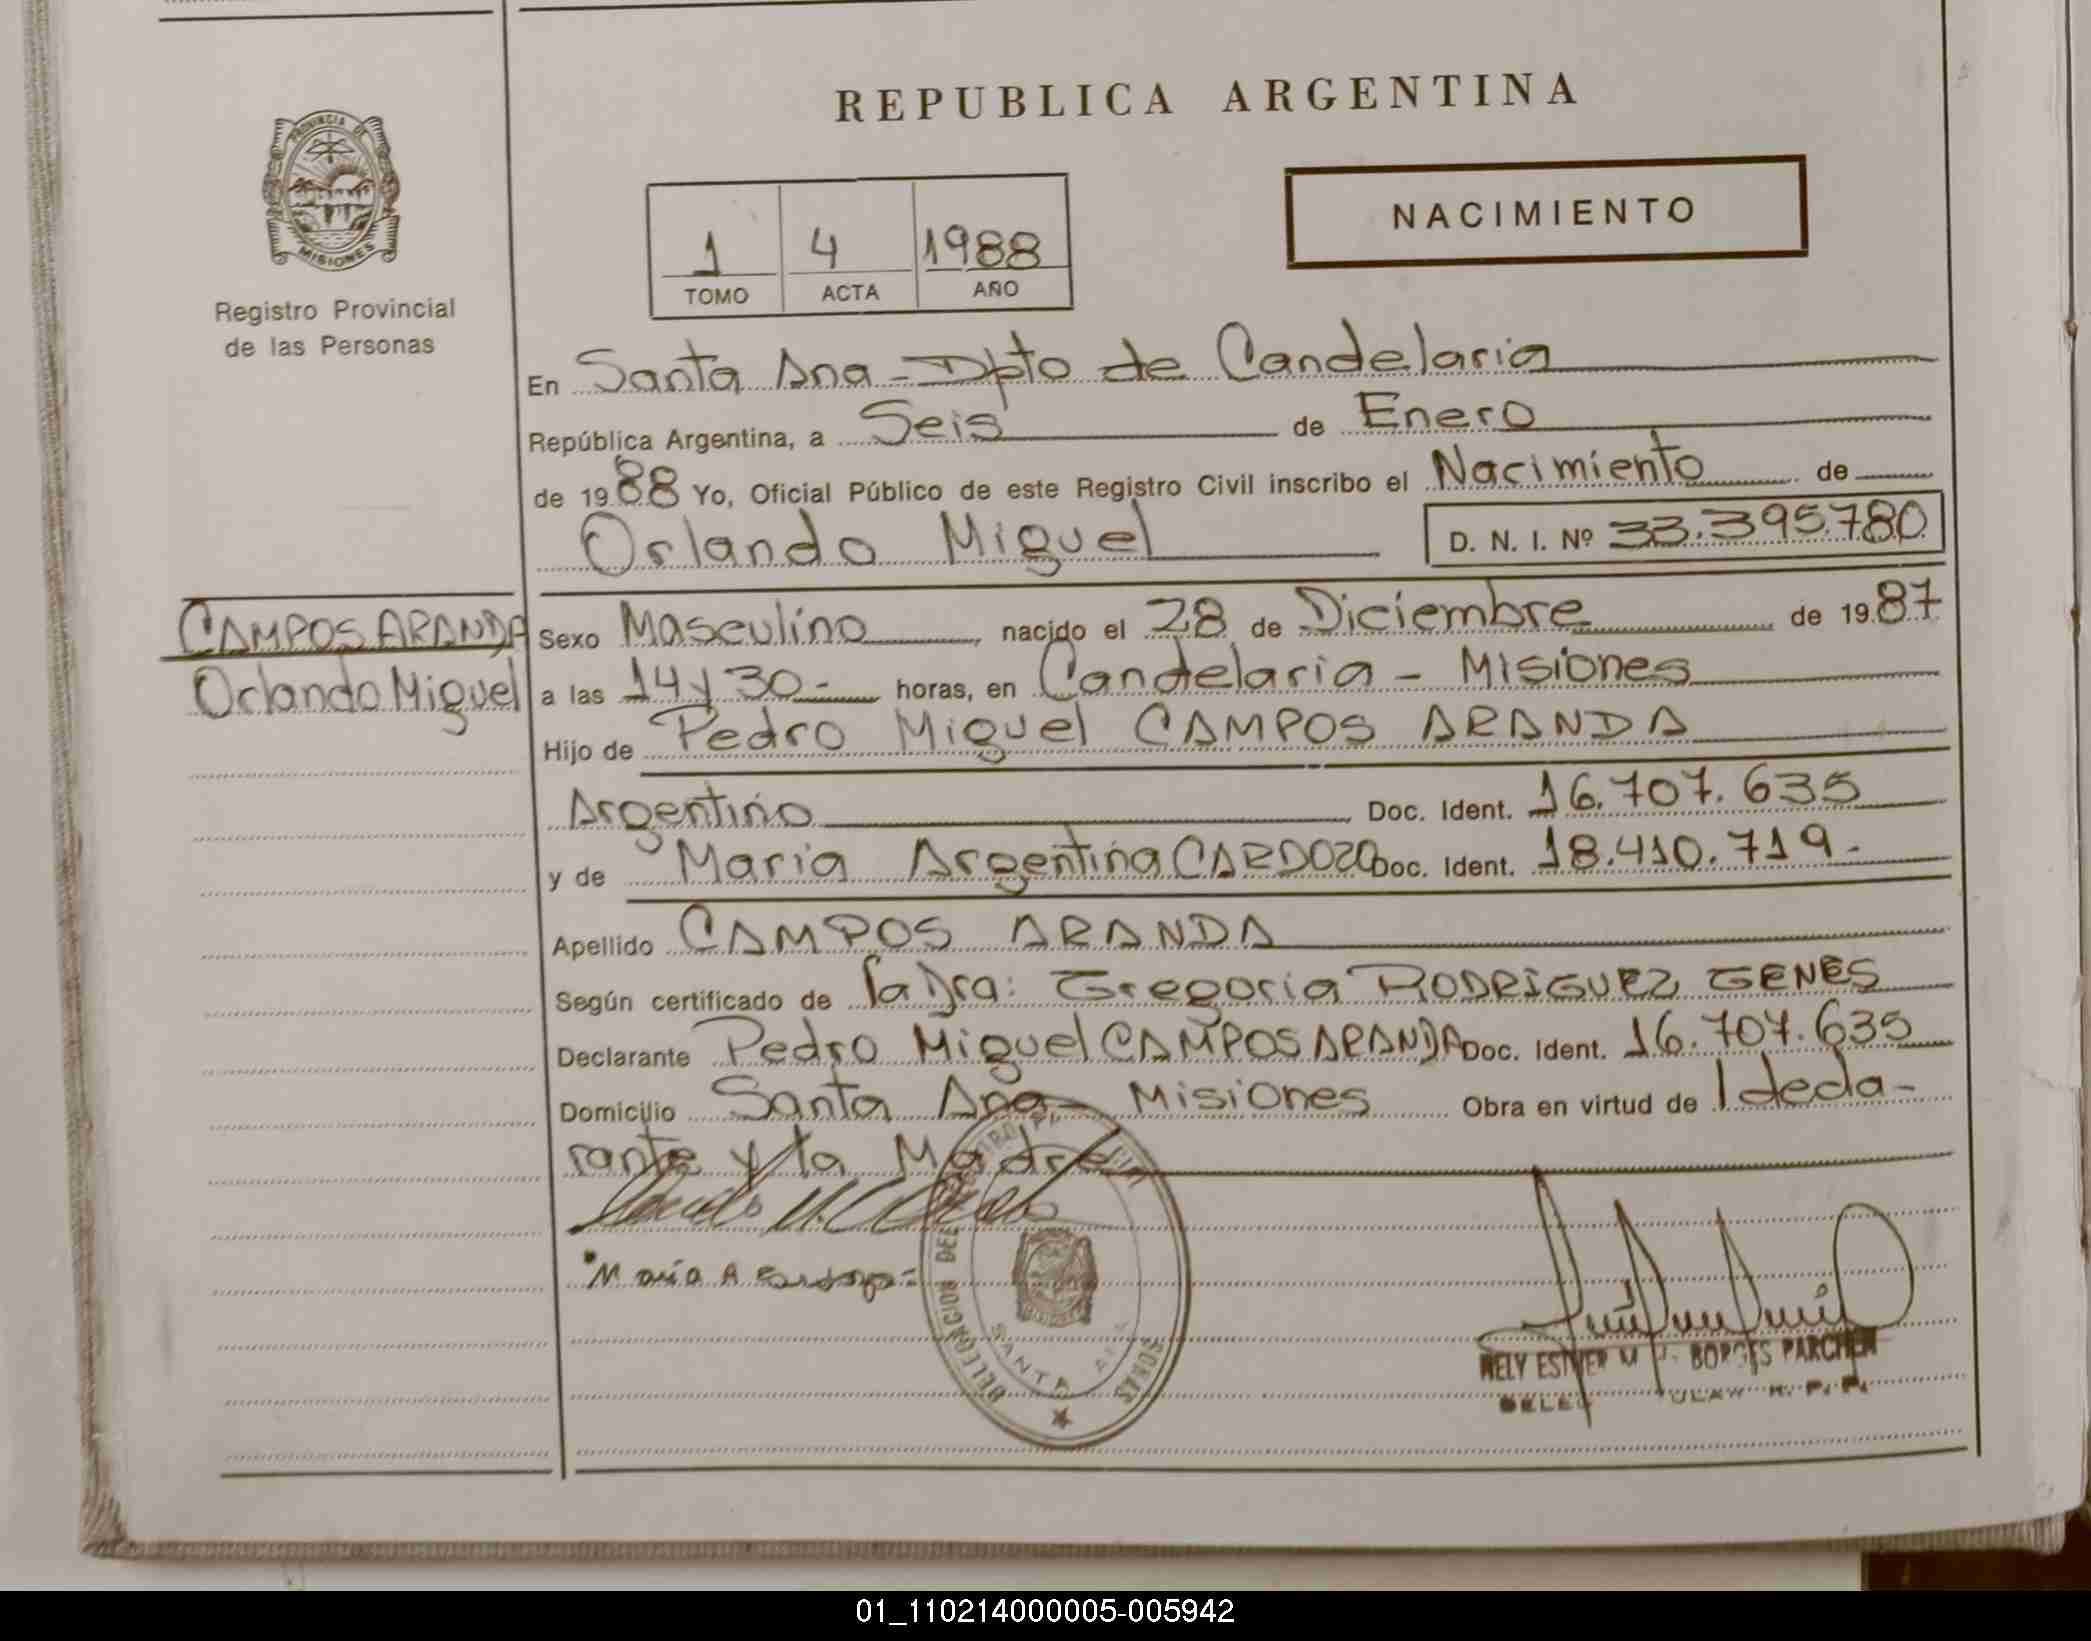 REPUBLICA ARGENTINA
PROVINCIA DE
MISIONES
Registro Provincial
de las Personas
1 4 1988
TOMO ACTA AÑO
NACIMIENTO
En Santa Ana - Dpto de Candelaria
República Argentina, a Seis de Enero
de 1988 Yo, Oficial Público de este Registro Civil inscribo el Nacimiento de
Orlando Miguel D. N. I. Nº 33.395.780
CAMPOS ARANDA
Orlando Miguel
Sexo Masculino, nacido el 28 de Diciembre de 1987
a las 14 y 30- horas, en Candelaria - Misiones
Hijo de Pedro Miguel CAMPOS ARANDA
Argentino, Doc. Ident. 16.707.635
y de Maria Argentina CARDOZO Doc. Ident. 18.410.719.-
Apellido CAMPOS ARANDA
Según certificado de la Dra: Gregoria RODRIGUEZ GENES
Declarante Pedro Miguel CAMPOS ARANDA Doc. Ident. 16.707.635
Domicilio Santa Ana - Misiones Obra en virtud de l decla-
rante y la Madre
Maria A
DELEGACION DEL
SANTA ANA
NELY ESTHER BORGES PARCHEM
01_110214000005-005942